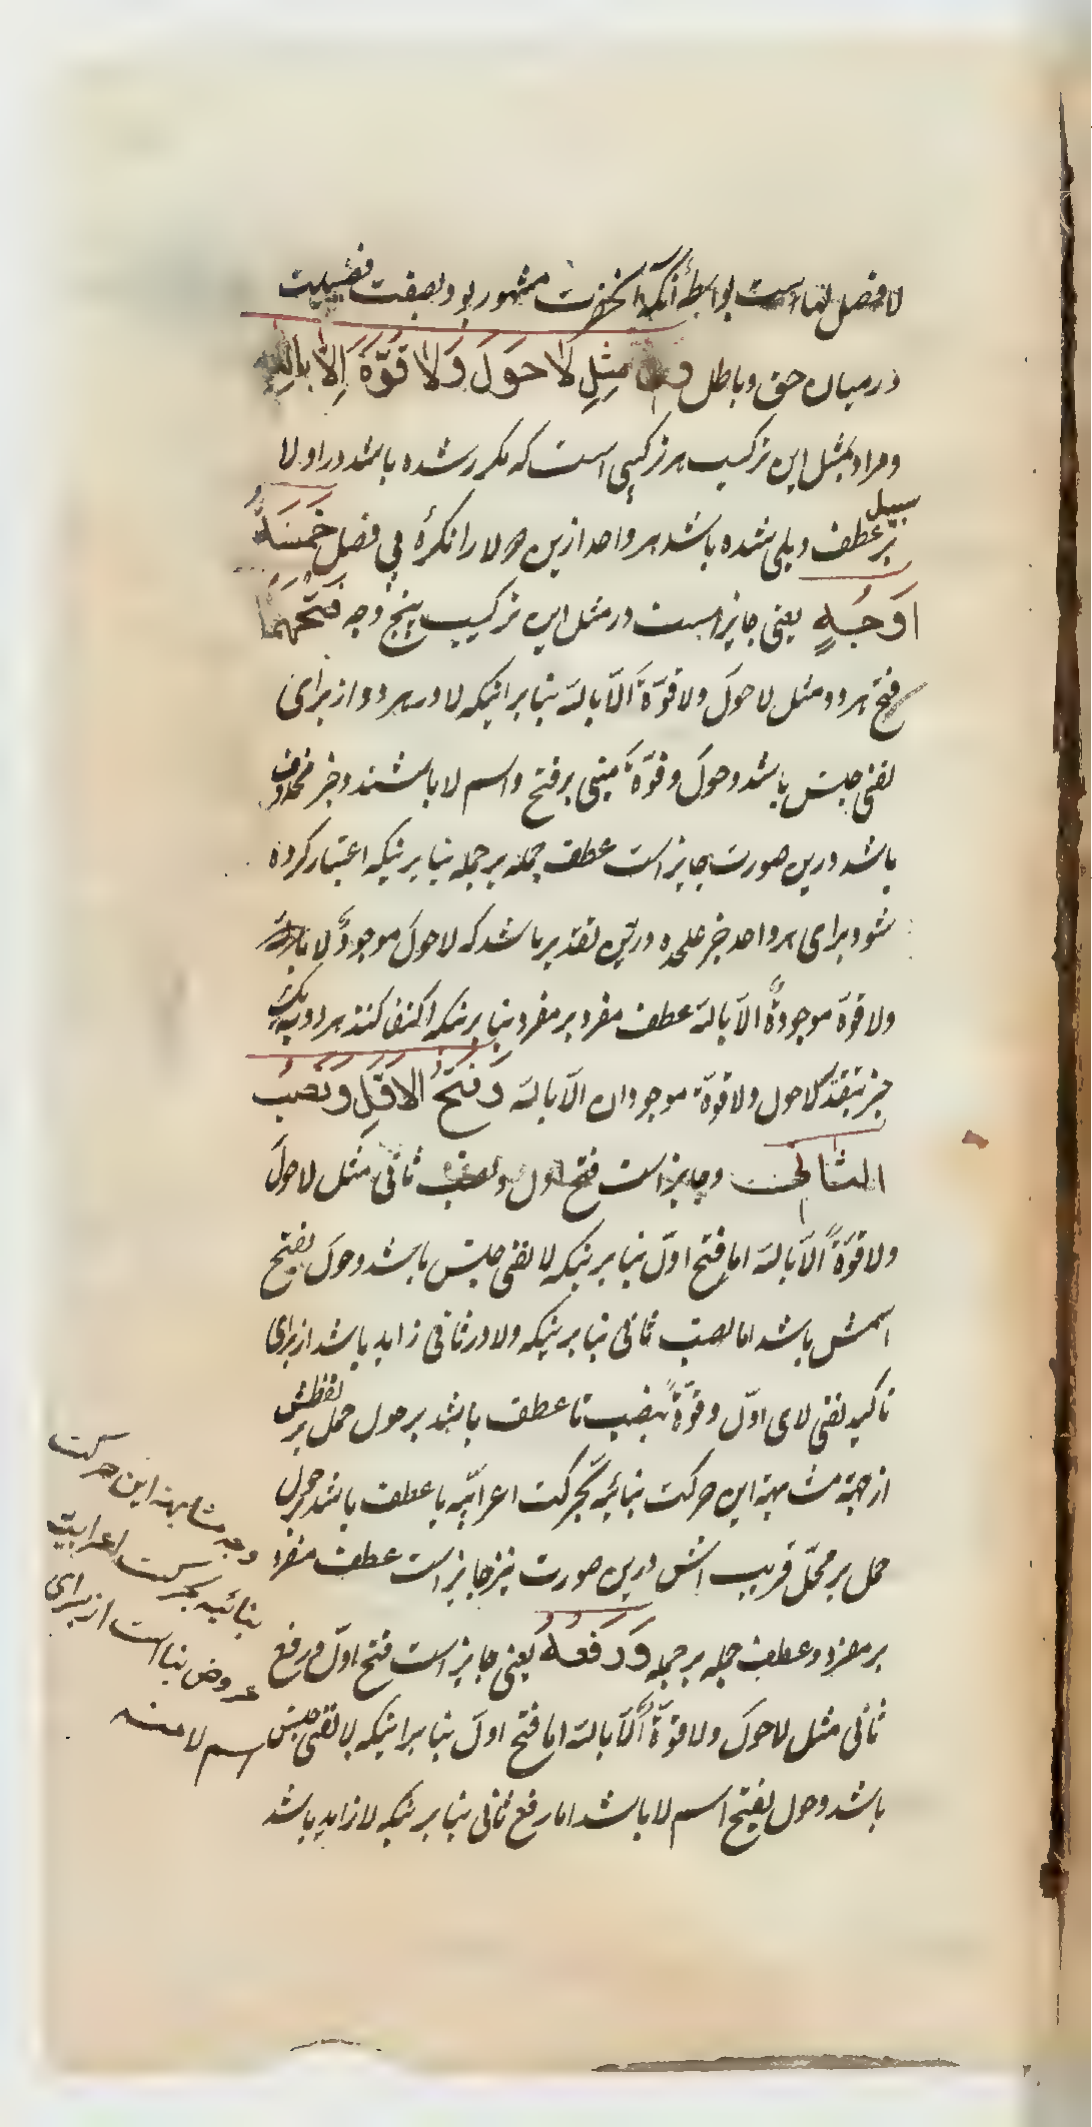 لا فصل لها است بواسطهٔ آنکه آنحضرت مشهور بود بصفت فضیلت
در میان حق و باطل وفی مِثلِ لَا حَوَلَ وَلَا قُوَّةَ اِلَّا بِاللهِ
و مراد بمثل این ترکیب هر ترکیبی است که مکرر شده باشد در او لا
بر سبیل عطف و یلی شده باشد هر واحد ازین دو لا را نکرهٔ بی فصل خَمسَةُ
اَوَجُهٍ یعنی جایز است در مثل این ترکیب پنج وجه فَتحُهُمَا
فتح هر دو مثل لا حولَ ولا قوّةَ الّا بالله بنا بر اینکه لا در هر دو از برای
نفی جنس باشد و حولَ و قوّةَ مبنی بر فتح و اسم لا باشند و خبر محذوف
باشد درین صورت جایز است عطف جمله بر جمله بنا برینکه اعتبار کرده
شود برای هر واحد خبر علیحده درین تقدیر باشد که لا حولَ موجودٌ الا بالله
ولا قوّة موجودةٌ الّا بالله عطف مفرد بر مفرد بنا برینکه اکتفا کنند هر دو بیک
خبر بتقدیر لا حول ولا قوّة موجودان الّا بالله وَفَتحُ الاوّلِ وَنَصبُ
الثانی وجایز است فتح اول و نصب ثانی مثل لا حولَ
ولا قوّةً الّا بالله اما فتح اوّل بنا برینکه لا نفی جنس باشد و حولَ بفتح
اسمش باشد اما نصب ثانی بنا برینکه ولا در ثانی زاید باشد از برای
تاکید نفی لای اوّل و قوّةً بنصب تا عطف باشد بر حول حمل بر لفظش
از جهة مشابهة این حرکت بنائیّه بحرکت اعرابیّه یا عطف باشد بر حول
حمل بر محلّ قریب اش درین صورت نیز جایز است عطف مفرد
بر مفرد و عطف جمله بر جمله وَرَفعُهُ یعنی جایز است فتح اوّل و رفع
ثانی مثل لا حولَ ولا قوّةٌ الّا بالله اما فتح اول بنا بر اینکه لا نفی جنس
باشد و حول بفتح اسم لا باشد اما رفع ثانی بنا برینکه لا زاید باشد
وجه مشابهة این حرکت
بنائیه بحرکت اعرابیت
عروض بنا است از برای
اسم لا منه